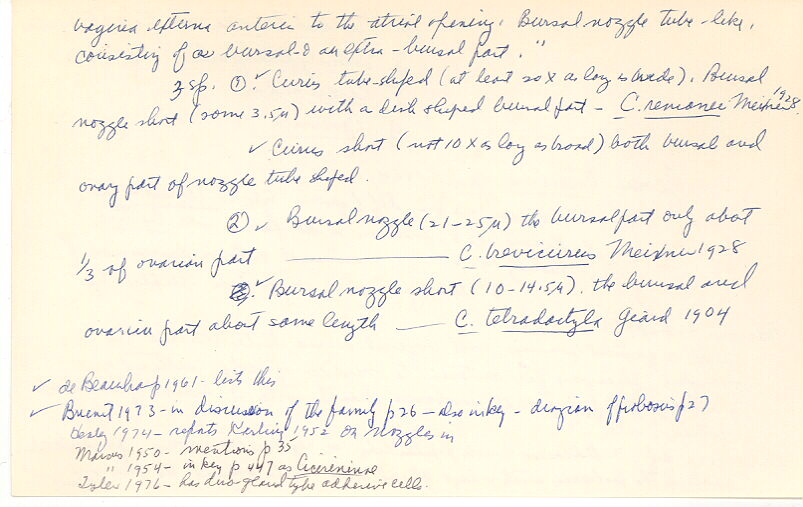 vagina externa anterior to the atrial opening. Bursal nozzle tube-like,
consisting of a bursal & an extra-bursal part."
3 sp. ① ✓ Cirrus tube-shaped (at least 20X as long as wide). Bursal
nozzle short (some 3.5µ) with a dish shaped bursal part - C. remanei Meixner 1928.
✓ Cirrus short (not 10 X as long as broad) both bursal and
ovary part of nozzle tube shaped.
② ✓ Bursal nozzle (21-25µ) the bursal part only about
1/3 of ovarian part —— C. brevicirrus Meixner 1928
✓ Bursal nozzle short (10-14.5µ). the bursal and
ovarian part about same length — C. tetradactyla Giard 1904
✓ de Beauchamp 1961 - lists this
✓ Brunet 1973 - in discussion of the family p26 - also in key - diagram of proboscis p27
1974 - reports Karling 1952 on nozzles in
Marcus 1950 - mentions p 35
" 1954 - in key p 447 as Cicerininae
Tyler 1976 - has duo-gland type adhesive cells.